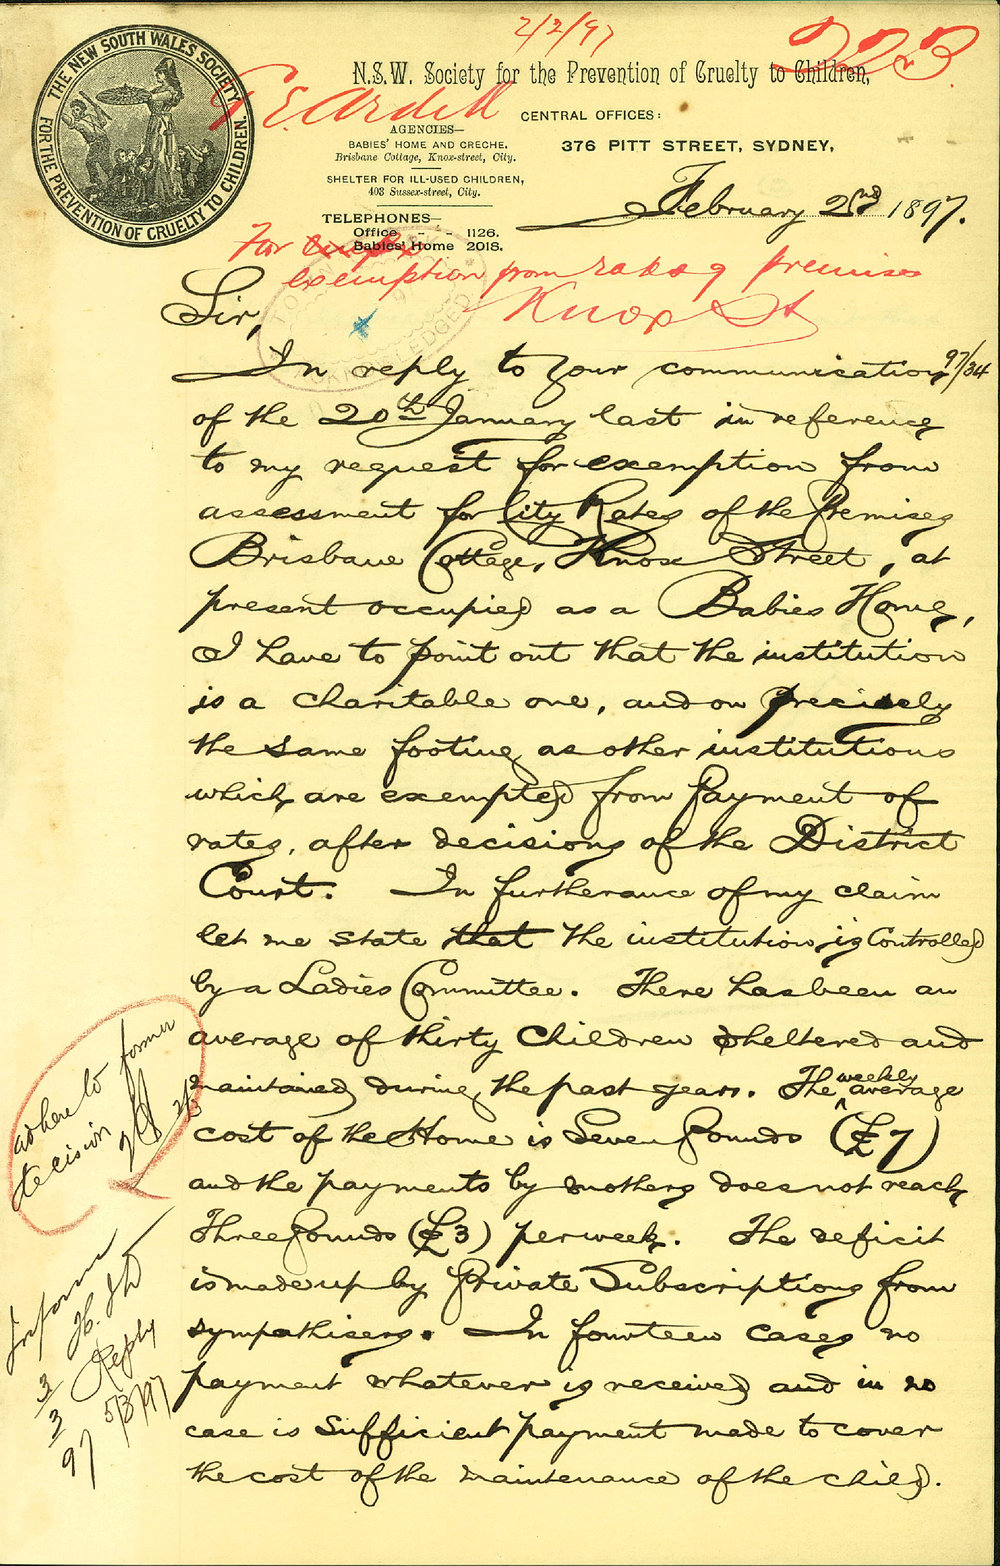 2/2/97
223
THE NEW SOUTH WALES SOCIETY
FOR THE PREVENTION OF CRUELTY TO CHILDREN.
N.S.W. Society for the Prevention of Cruelty to Children,
G E Ardill
CENTRAL OFFICES:
376 PITT STREET, SYDNEY,
AGENCIES—
BABIES' HOME AND CRECHE,
Brisbane Cottage, Knox-street, City.
SHELTER FOR ILL-USED CHILDREN,
403 Sussex-street, City.
TELEPHONES—
Office - - - 1126.
Babies' Home 2018.
February 2nd 1897.
For
exemption from rates of premises
Knox St
Sir,
In reply to your communication 97/34
of the 20th January last in reference
to my request for exemption from
assessment for City Rates of the Premises
Brisbane Cottage, Knox Street, at
present occupied as a Babies Home,
I have to point out that the institution
is a charitable one, and on precisely
the same footing as other institutions
which are exempted from payment of
rates, after decisions of the District
Court. In furtherance of my claim
let me state that the institution is Controlled
by a Ladies Committee. There has been an
average of thirty Children sheltered and
maintained during the past years. The weekly average
cost of the Home is Seven Pounds (£7)
and the payments by mothers does not reach
Three Pounds (£3) per week. The deficit
is made up by Private Subscriptions from
sympathisers. In fourteen cases no
payment whatever is received and in no
case is sufficient payment made to cover
the cost of the maintenance of the child.
adhere to former
decision
2/3
Inform
3/3/97
Reply
5/3/97